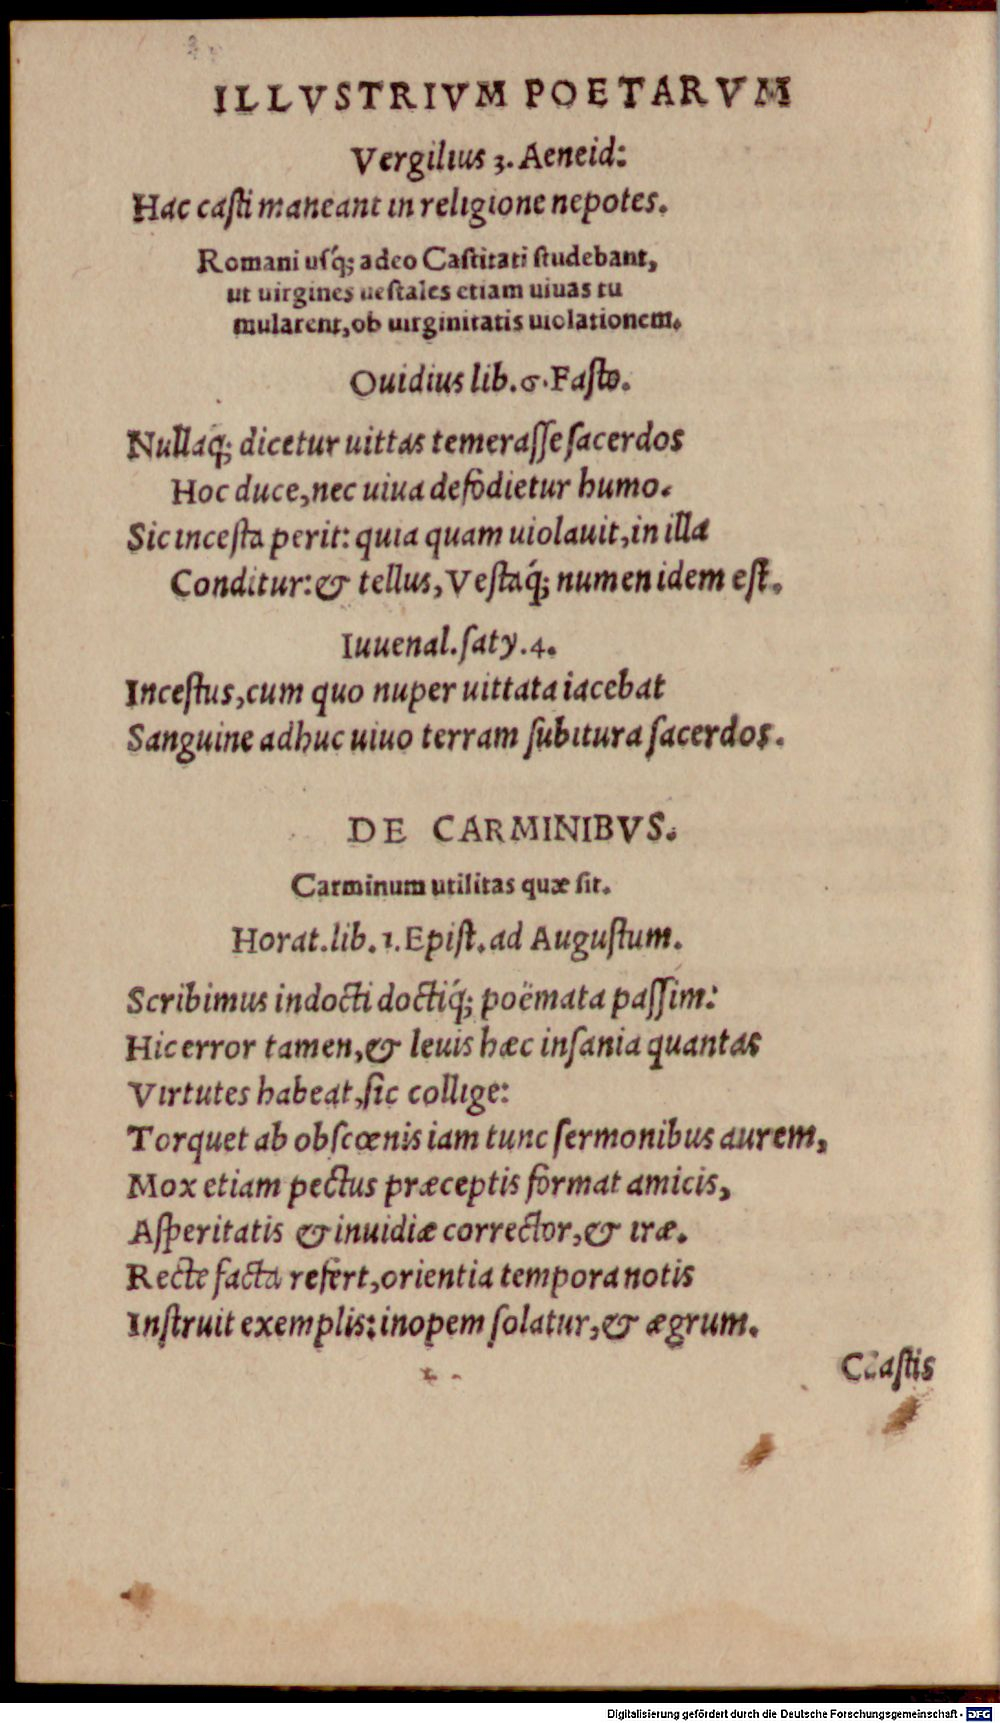 ILLVSTRIVM POETARVM
Vergilius 3. Aeneid:
Hac casti maneant in religione nepotes.
Romani usq́; adeo Castitati studebant,
ut uirgines uestales etiam uiuas tu
mularent, ob uirginitatis uiolationem.
Ouidius lib. 6. Fasto.
Nullaq́; dicetur uittas temerasse sacerdos
Hoc duce, nec uiua defodietur humo.
Sic incesta perit: quia quam uiolauit, in illa
Conditur: & tellus, Vestaq́; numen idem est.
Iuuenal. saty. 4.
Incestus, cum quo nuper uittata iacebat
Sanguine adhuc uiuo terram subitura sacerdos.
DE CARMINIBVS.
Carminum utilitas quæ sit.
Horat. lib. 1. Epist. ad Augustum.
Scribimus indocti doctiq́; poëmata passim:
Hic error tamen, & leuis hæc insania quantas
Virtutes habeat, sic collige:
Torquet ab obscœnis iam tunc sermonibus aurem,
Mox etiam pectus præceptis format amicis,
Asperitatis & inuidiæ corrector, & iræ.
Recte facta refert, orientia tempora notis
Instruit exemplis: inopem solatur, & ægrum.
Castis
Digitalisierung gefördert durch die Deutsche Forschungsgemeinschaft - DFG